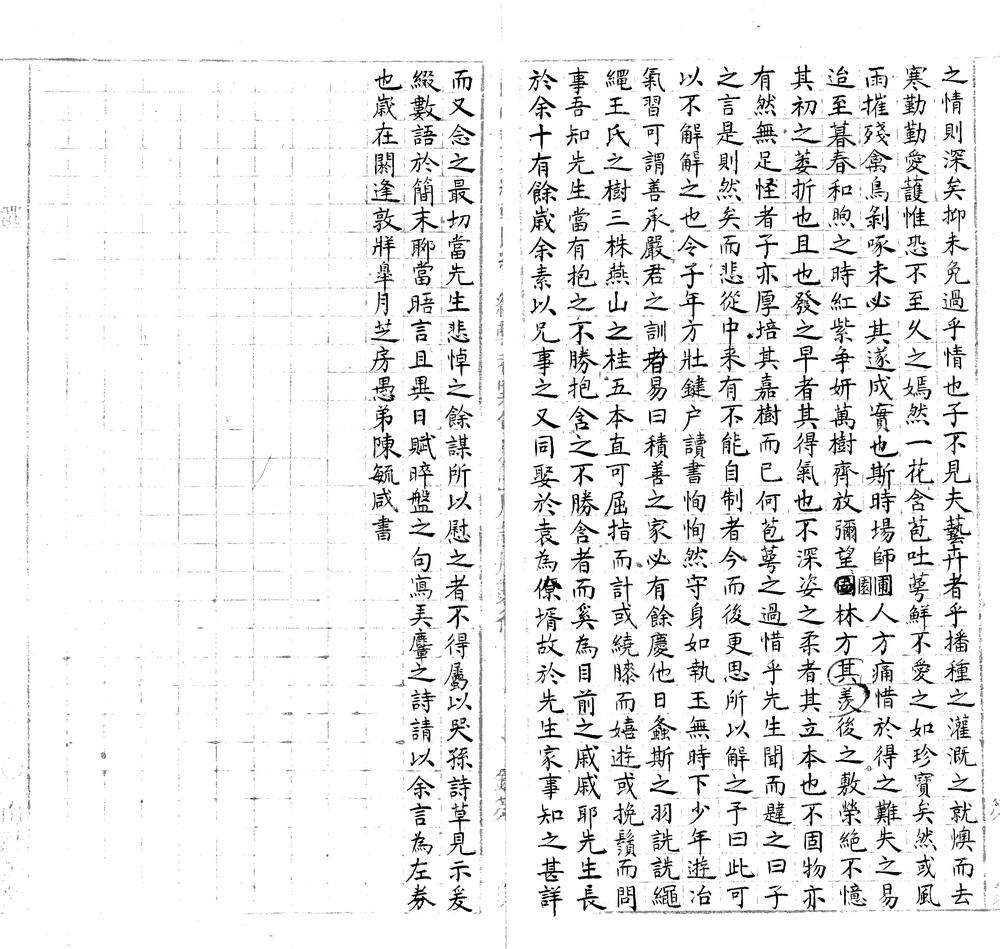 之情則深矣抑未免過乎情也子不見夫藝卉者乎播種之灌溉之就燠而去
寒勤勤愛護惟恐不至久之嫣然一花含苞吐萼鮮不愛之如珍寶矣然或風
雨摧殘禽鳥剝啄未必其遂成實也斯時場師圃人方痛惜於得之難失之易
迨至暮春和煦之時紅紫爭妍萬樹齊放彌望園林方其羨後之敷榮絕不憶
其初之萎折也且也發之早者其得氣也不深姿之柔者其立本也不固物亦
有然無足怪者子亦厚培其嘉樹而已何苞萼之過惜乎先生聞而韙之曰子
之言是則然矣而悲從中來有不能自制者今而後更思所以解之予曰此可
以不解解之也令子年方壯鍵户讀書恂恂然守身如執玉無時下少年遊冶
氣習可謂善承嚴君之訓者易曰積善之家必有餘慶他日螽斯之羽詵詵繩
繩王氏之樹三株燕山之桂五本直可屈指而計或繞膝而嬉遊或挽鬚而問
事吾知先生當有抱之不勝抱含之不勝含者而奚為目前之戚戚耶先生長
於余十有餘歲余素以兄事之又同娶於袁為僚壻故於先生家事知之甚詳
而又念之最切當先生悲悼之餘謀所以慰之者不得屬以哭孫詩草見示爰
綴數語於簡末聊當晤言且異日賦晬盤之句寫弄麞之詩請以余言為左券
也歲在閼逢敦牂皐月芝房愚弟陳毓咸書